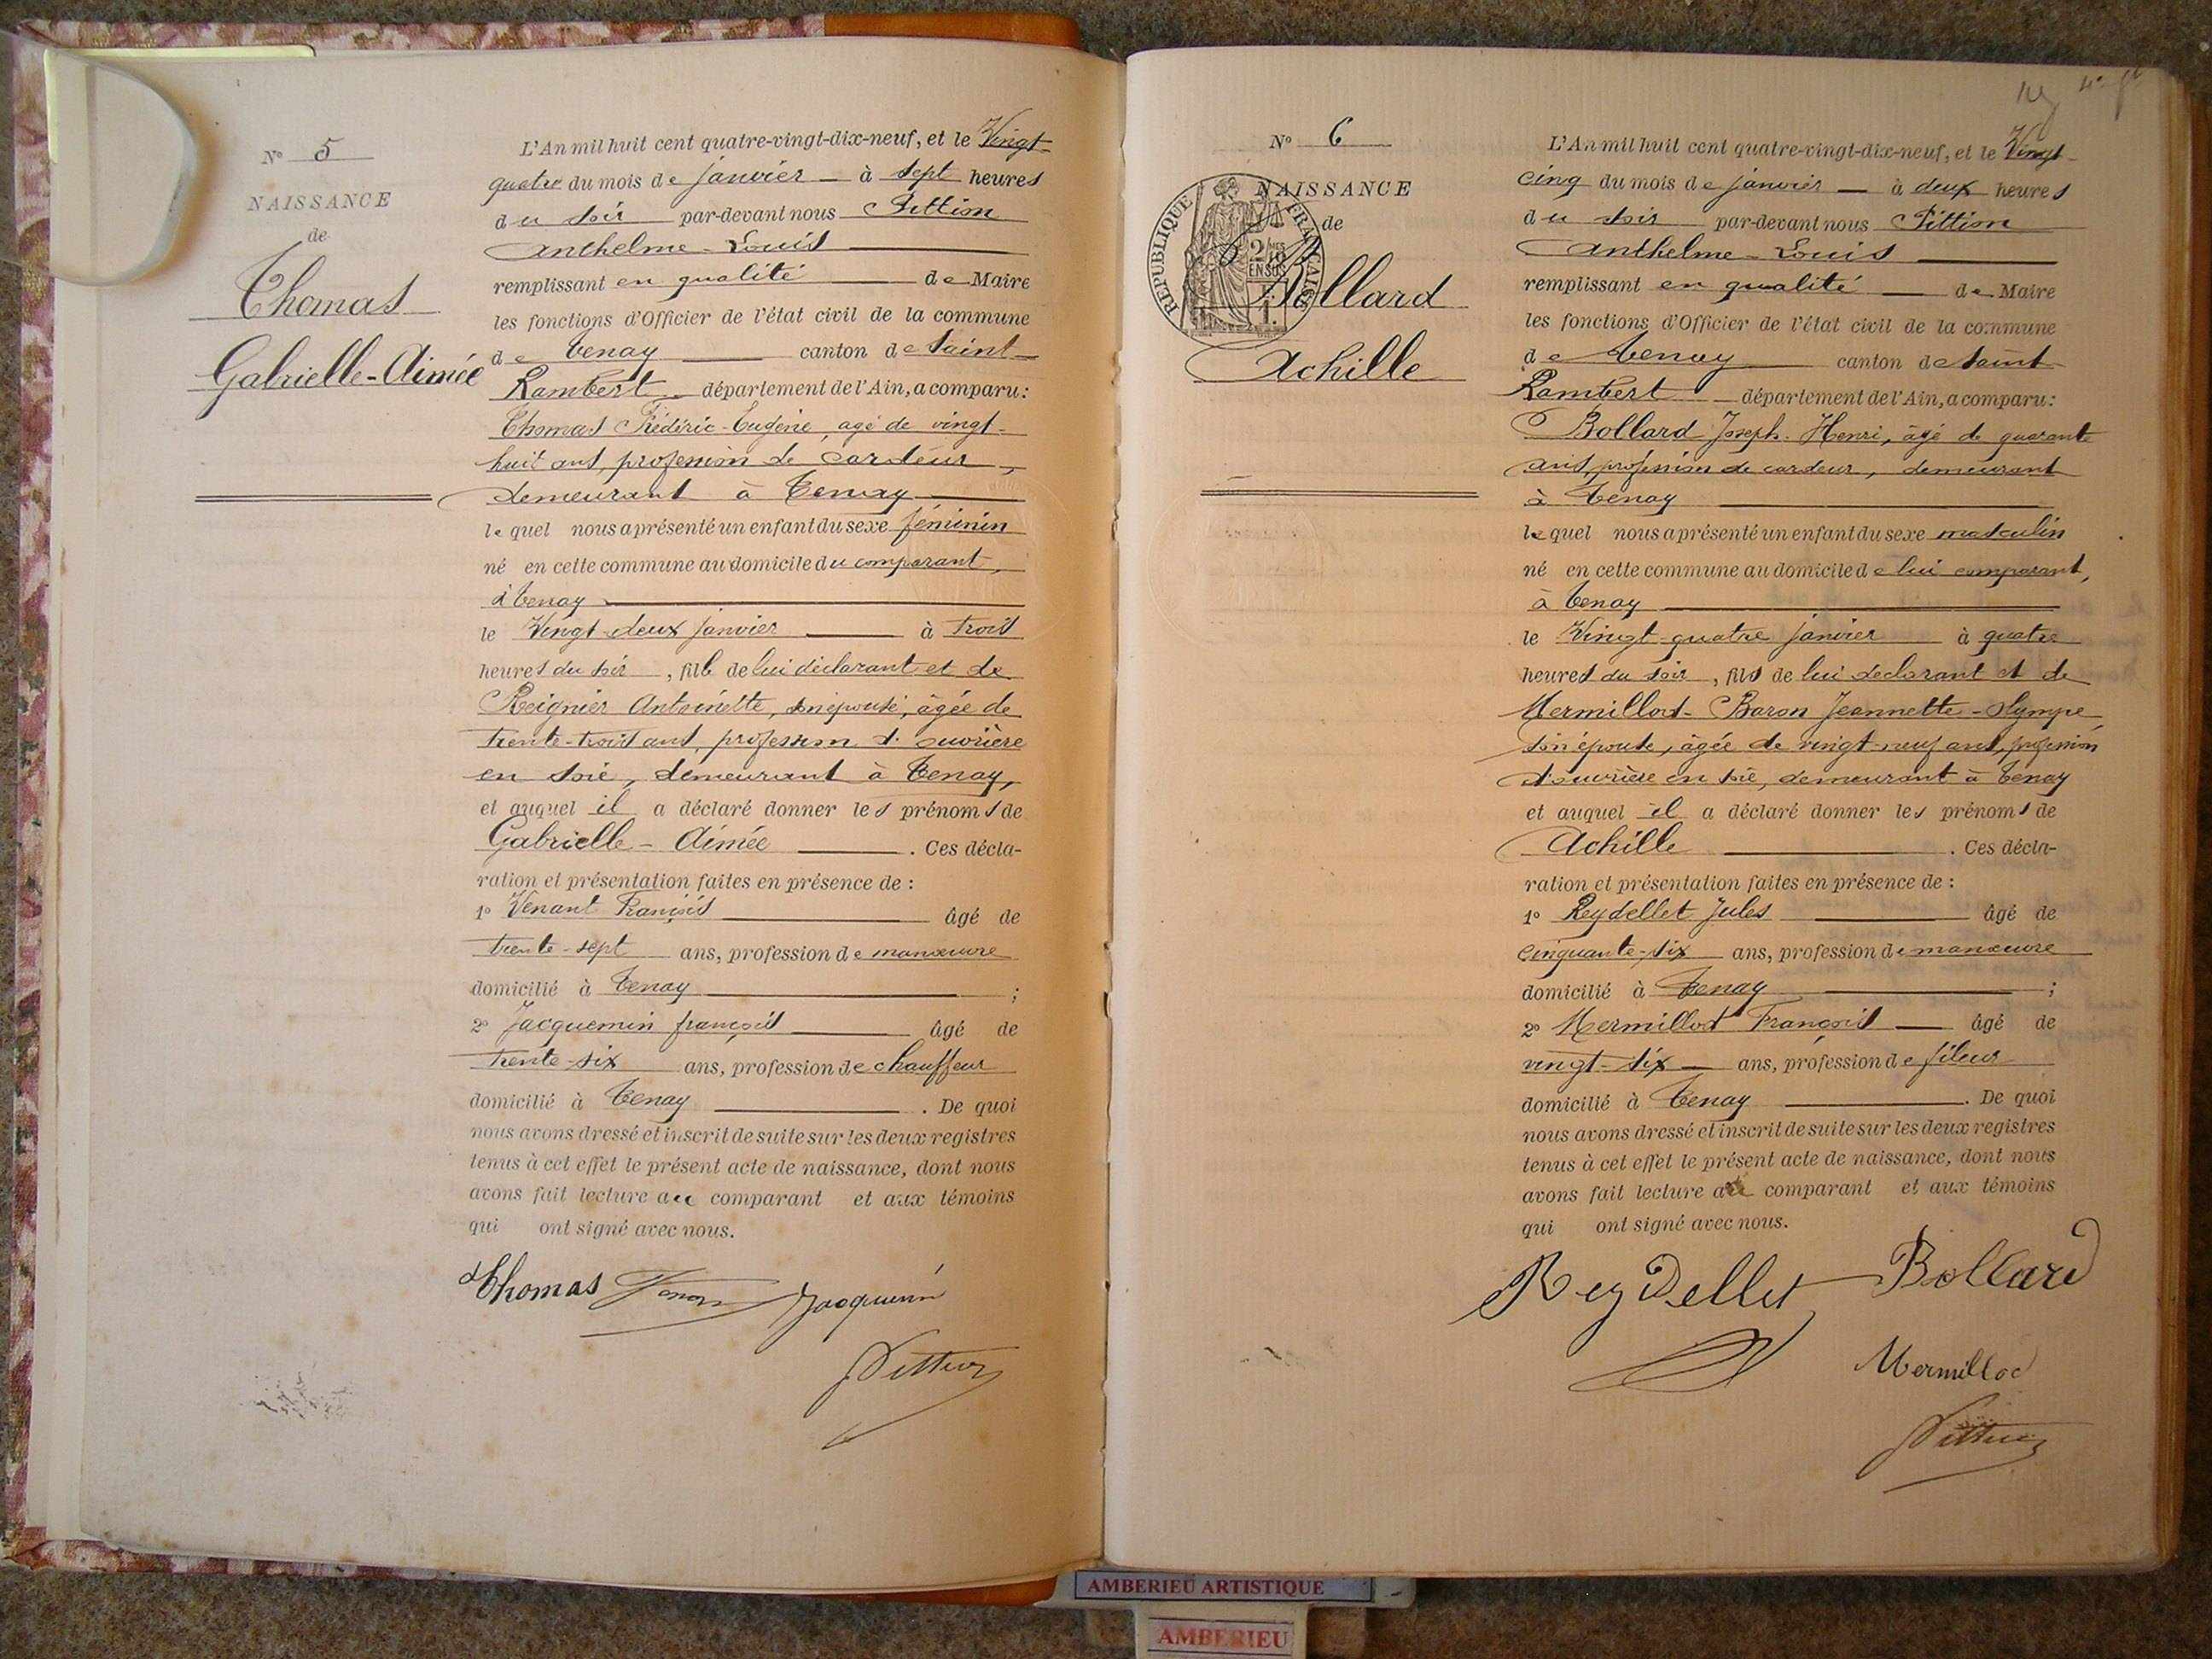 N° 5
NAISSANCE
de
Thomas
Gabrielle-Aimée
L'An mil huit cent quatre-vingt-dix-neuf, et le Vingt-
quatre du mois de janvier à sept heures
du soir par-devant nous Pittion
Anthelme-Louis
remplissant en qualité de Maire
les fonctions d'Officier de l'état civil de la commune
de Tenay canton de Saint-
Rambert département de l'Ain, a comparu:
Thomas Frédéric-Eugène, agé de vingt-
huit ans, profession de cardeur,
demeurant à Tenay
lequel nous a présenté un enfant du sexe féminin
né en cette commune au domicile du comparant,
à Tenay
le Vingt-deux janvier à trois
heures du soir, fille de lui déclarant et de
Reignier Antoinette, son épouse, âgée de
trente-trois ans, profession d'ouvrière
en soie, demeurant à Tenay,
et auquel il a déclaré donner les prénoms de
Gabrielle-Aimée. Ces décla-
ration et présentation faites en présence de :
1° Venant François âgé de
trente-sept ans, profession de manœuvre
domicilié à Tenay ;
2° Jacquemin françois âgé de
trente-six ans, profession de chauffeur
domicilié à Tenay. De quoi
nous avons dressé et inscrit de suite sur les deux registres
tenus à cet effet le présent acte de naissance, dont nous
avons fait lecture au comparant et aux témoins
qui ont signé avec nous.
Thomas Jacquemin
Pittion
N° 6
NAISSANCE
de
REPUBLIQUE FRANÇAISE
Bollard
Achille
L'An mil huit cent quatre-vingt-dix-neuf, et le Vingt-
cinq du mois de janvier à deux heures
du soir par-devant nous Pittion
Anthelme-Louis
remplissant en qualité de Maire
les fonctions d'Officier de l'état civil de la commune
de Tenay canton de Saint-
Rambert département de l'Ain, a comparu:
Bollard Joseph-Henri, âgé de quarante
ans, profession de cardeur, demeurant
à Tenay
lequel nous a présenté un enfant du sexe masculin
né en cette commune au domicile de lui comparant,
à Tenay
le Vingt-quatre janvier à quatre
heures du soir, fils de lui déclarant et de
Mermillod-Baron Jeannette-Olympe
son épouse, âgée de vingt-neuf ans, profession
d'ouvrière en soie, demeurant à Tenay
et auquel il a déclaré donner les prénoms de
Achille. Ces décla-
ration et présentation faites en présence de :
1° Reydellet Jules âgé de
cinquante-six ans, profession de manœuvre
domicilié à Tenay ;
2° Mermillod François âgé de
vingt-six ans, profession de fileur
domicilié à Tenay. De quoi
nous avons dressé et inscrit de suite sur les deux registres
tenus à cet effet le présent acte de naissance, dont nous
avons fait lecture au comparant et aux témoins
qui ont signé avec nous.
ReyDellet Bollard
Mermillod
Pittion
AMBERIEU ARTISTIQUE
AMBERIEU